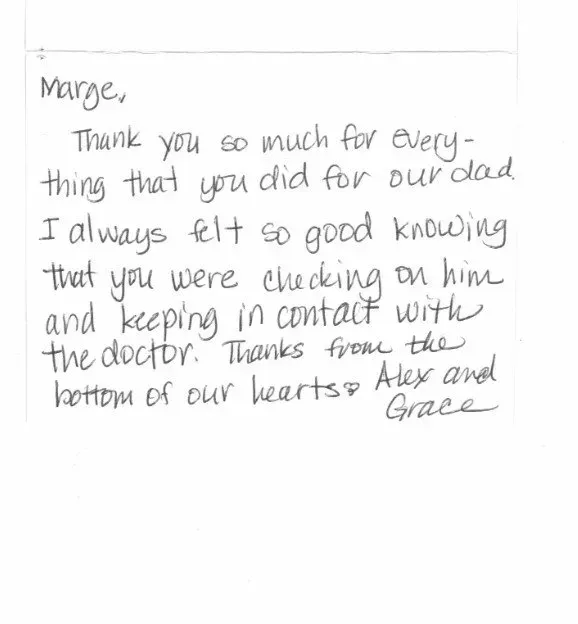 Marge,
Thank you so much for every-
thing that you did for our dad.
I always felt so good knowing
that you were checking on him
and keeping in contact with
the doctor. Thanks from the
bottom of our hearts Alex and
Grace